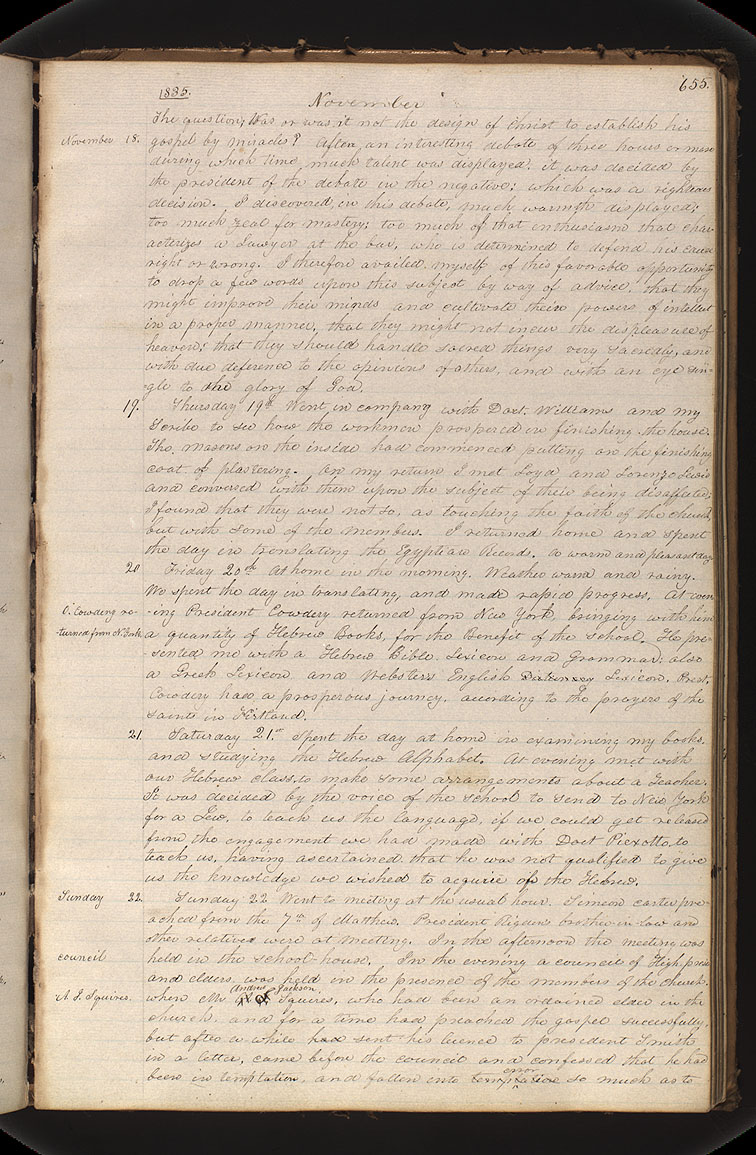 1835.
655.
November
The question, was or was it not the design of Christ to establish his
November 18. gospel by miracles? After, an interesting debate of three hours or more
during which time, much talent was displayed, it was decided by
the president of the debate in the negative; which was a righteous
decision. I discovered, in this debate, much warmth displayed;
too much zeal for mastery; too much of that enthusiasm that char-
acterizes a Lawyer at the bar, who is determined to defend his cause
right or wrong. I therefore availed myself of this favorable opportunity
to drop a few words upon this subject by way of advice, that they
might improve their minds and cultivate their powers of intellect
in a proper manner, that they might not incur the displeasure of
heaven; that they should handle sacred things very sacredly, and
with due deference to the opinions of others, and with an eye sin-
gle to the glory of God.
19. Thursday 19th Went in company with Doct. Williams and my
Scribe to see how the workmen prospered in finishing the house.
The masons on the inside had commenced putting on the finishing
coat of plastering. On my return I met Loyd and Lorenzo Lewis
and conversed with them upon the subject of their being disaffected;
I found that they were not so, as touching the faith of the church,
but with some of the members. I returned home and spent
the day in translating the Egyptian Records. A warm and pleasant day.
20 Friday 20th At home in the morning. Weather warm and rainy.
We spent the day in translating, and made rapid progress, At even-
O. Cowdery re- -ing President Cowdery returned from New York, bringing with him
-turned from N. York. a quantity of Hebrew Books, for the Benefit of the school. He pre-
sented me with a Hebrew Bible, Lexicon and Grammar, also
a Greek Lexicon, and Websters English Dictionary Lexicon. Prest.
Cowdery had a prosperous journey, according to the prayers of the
saints in Kirtland.
21 Saturday 21st Spent the day at home in examining my books,
and studying the Hebrew Alphabet. At evening met with
our Hebrew class, to make some arrangements about a Teacher.
It was decided by the voice of the school to send to New York
for a Jew, to teach us the language, if we could get released
from the engagement we had made with Doct Piexotto, to
teach us, having ascertained that he was not qualified to give
us the knowledge we wished to acquire of the Hebrew.
Sunday 22. Sunday 22 Went to meeting at the usual hour. Simeon Carter pre-
ached from the 7th of Matthew. President Rigdon's brother-in-law and
other relatives were at meeting. In the afternoon the meeting was
council held in the school-house. In the evening a council of High priests
and elders, was held in the presence of the members of the church.
Andrew Jackson
A. J. Squires. when Mr Squires, who had been an ordained elder in the
church, and for a time had preached the gospel successfully,
but after a while had sent his licence to president Smith
in a letter, came before the council and confessed that he had
error
been in temptation, and fallen into temptation so much as to